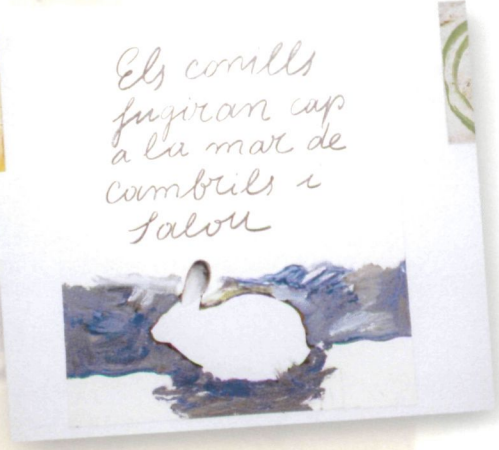 Els conills
fugiran cap
a la mar de
cambrils i
Salou